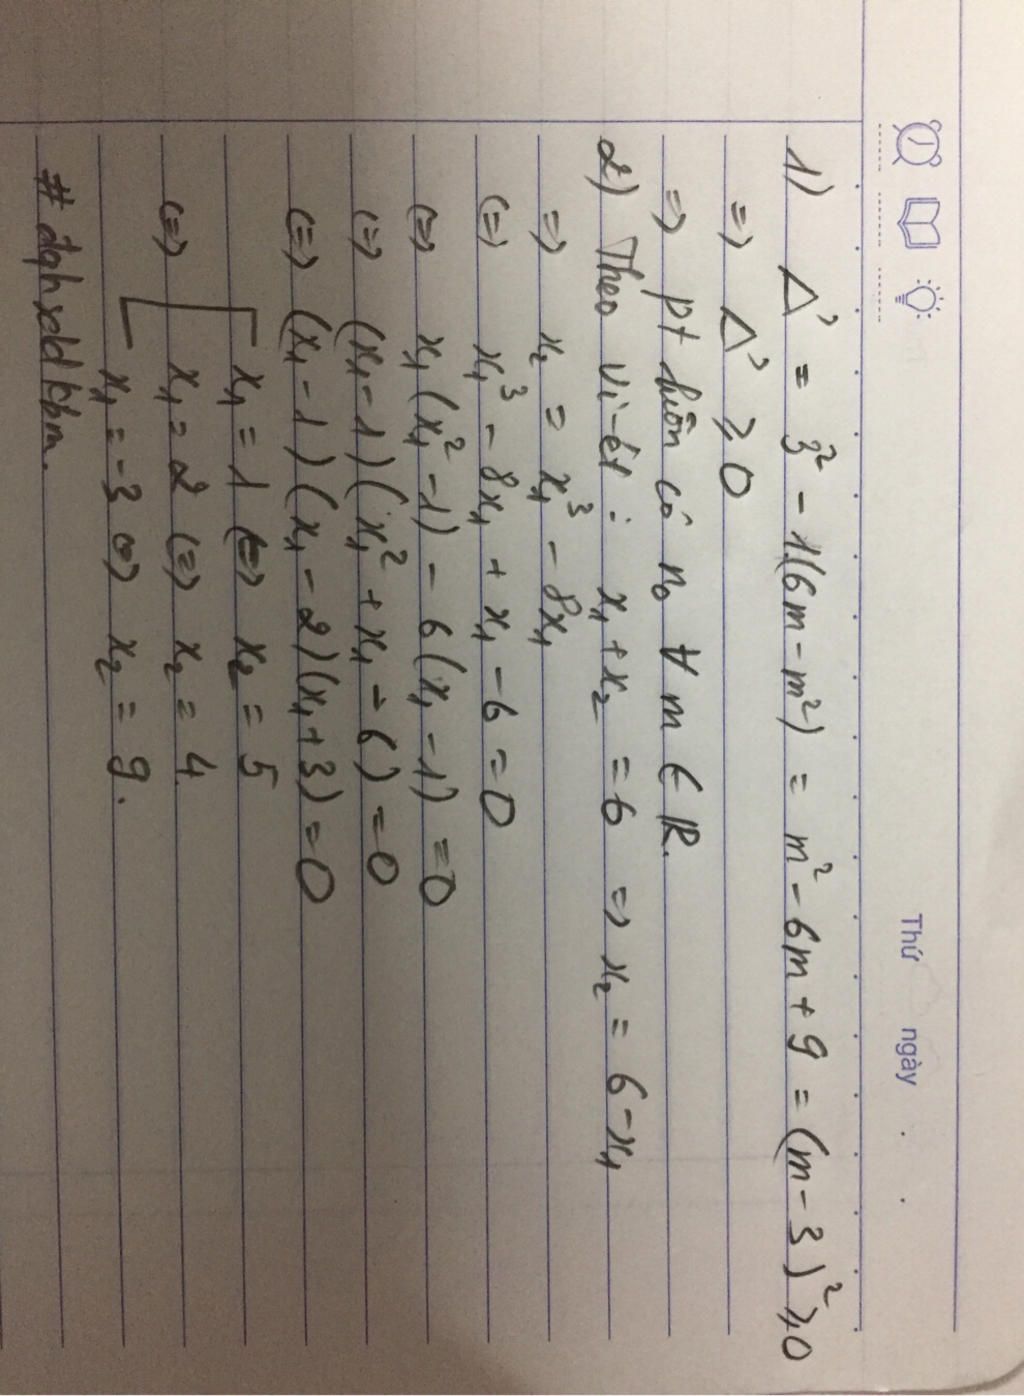 Thứ ngày . .
1) Δ' = 3² - 1.(6m - m²) = m² - 6m + 9 = (m - 3)² ⩾ 0
=> Δ' ⩾ 0
=> pt luôn có n₀ ∀ m ∈ R.
2) Theo vi-ét : x₁ + x₂ = 6 => x₂ = 6 - x₁
=> x₂ = x₁³ - 8x₁
(=) x₁³ - 8x₁ + x₁ - 6 = 0
(=) x₁(x₁² - 1) - 6(x₁ - 1) = 0
(=) (x₁ - 1)(x₁² + x₁ - 6) = 0
(=) (x₁ - 1)(x₁ - 2)(x₁ + 3) = 0
x₁ = 1 (=) x₂ = 5
(=) x₁ = 2 (=) x₂ = 4
x₁ = -3 (=) x₂ = 9.
# đqhxddkbm.